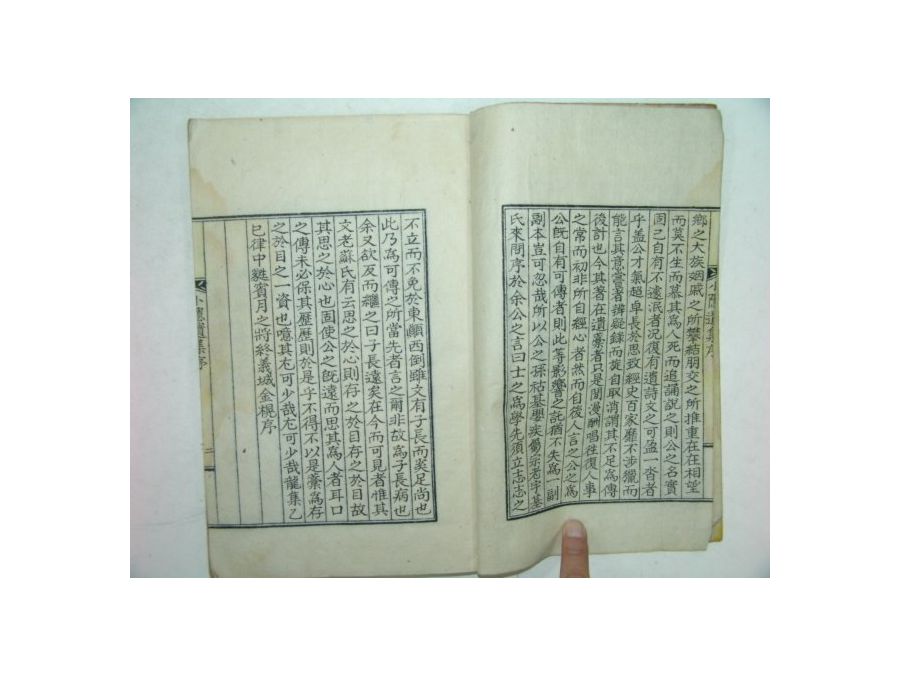 鄉之大族姻戚之所攀結朋交之所推重在在相望
而莫不生而慕其爲人死而追誦說之則公之名實
固已自有不遠泯者況復有遺詩文之可盈一沓者
乎盖公才氣超卓長於思致經史百家靡不涉獵而
能言其意嘗著辨疑錄而旋自取消謂其不足爲傳
後計也今其著在遺藁者只是閒漫酬唱徃復人事
之常而初非所自經心者然而自後人言之公之爲
公旣自有可傳者則此等影響之託猶不失爲一副
副本豈可忽哉所以公之孫秸基嬰疾
氏來問序於余公之言曰士之爲學先須立志志之
小隱遺集序
不立而不免於東顚西倒雖文有子長而奚足尚也
此乃爲可傳之所當先者言之爾非故爲子長病也
余又欲反而繼之曰子長遠矣在今而可見者惟其
文老蘇氏有云思之於心則存之於目存之於目故
其思之於心也固使公之旣遠而思其爲人者耳口
之傳未必保其歷歷則於是乎不得不以是藁爲存
之於目之一資也噫其尤可少哉尤可少哉龍集乙
巳律中蕤賓月之將終義城金榥序
小隱遺集序
二